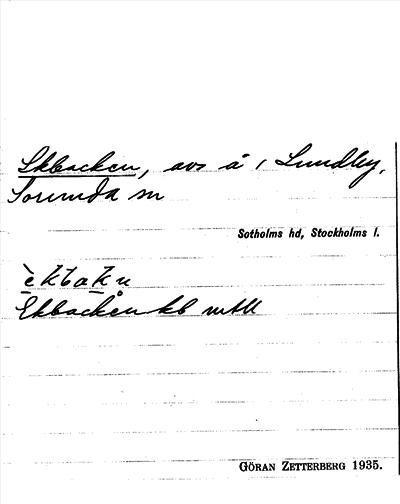 Ekbacken, avs å 1 Lundby,
Sorunda sn
Sotholms hd, Stockholms l.
èkbakn
Ekbacken kb
GÖRAN ZETTERBERG 1935.